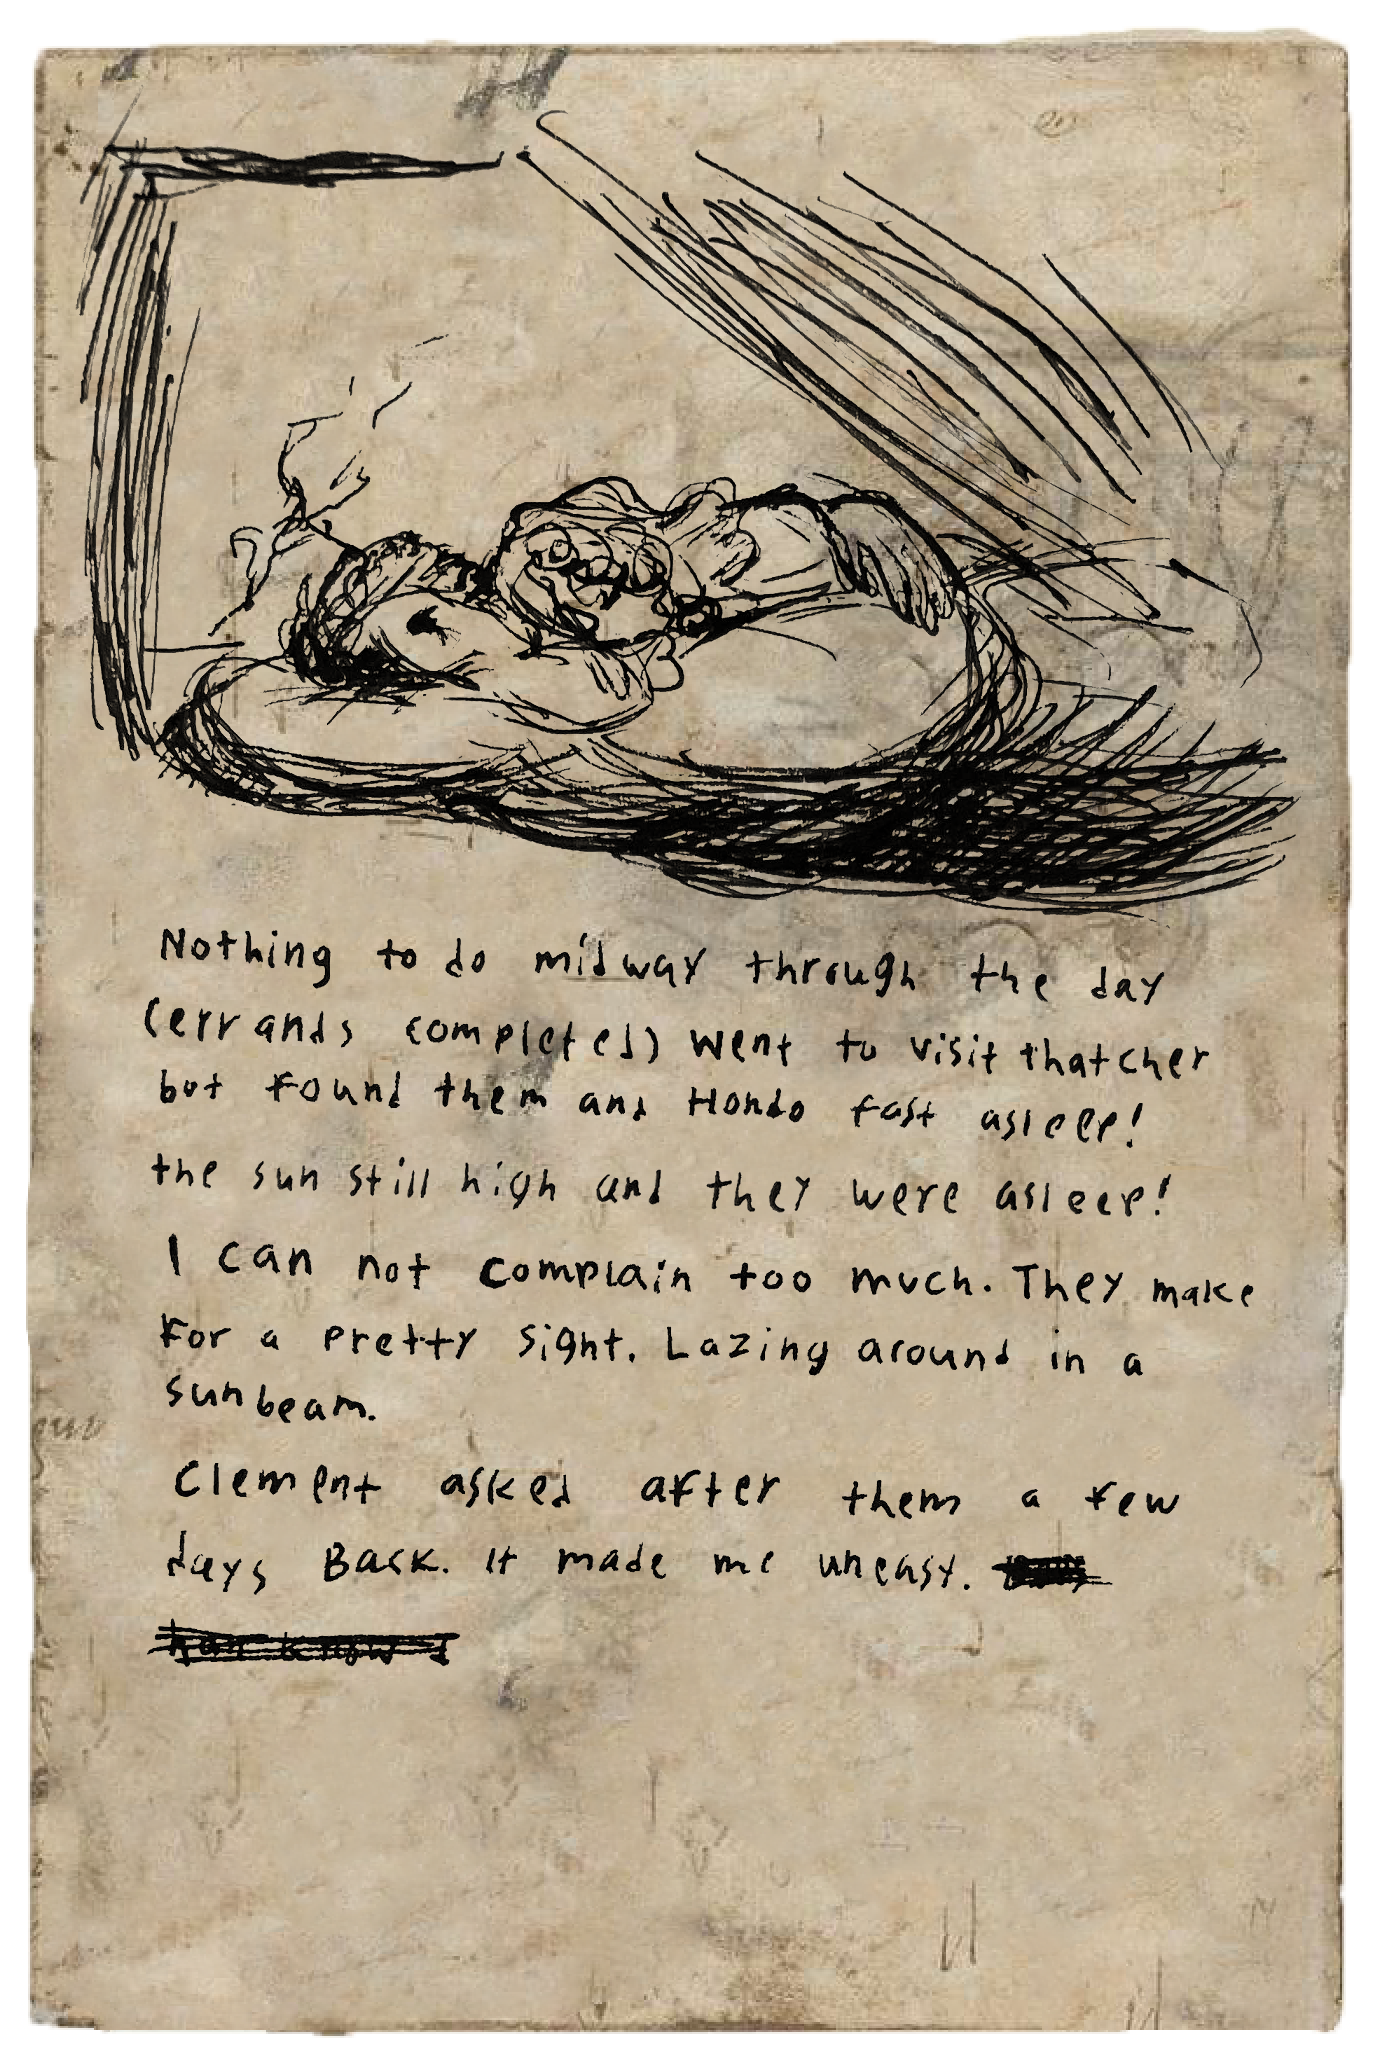 Nothing to do midway through the day
(errands completed) went to visit thatcher
but found them and Hondo fast asleep!
the sun still high and they were asleep!
I can not complain too much. They make
for a pretty sight. Lazing around in a
sunbeam.
Clement asked after them a few
days Back. It made me uneasy.
know I